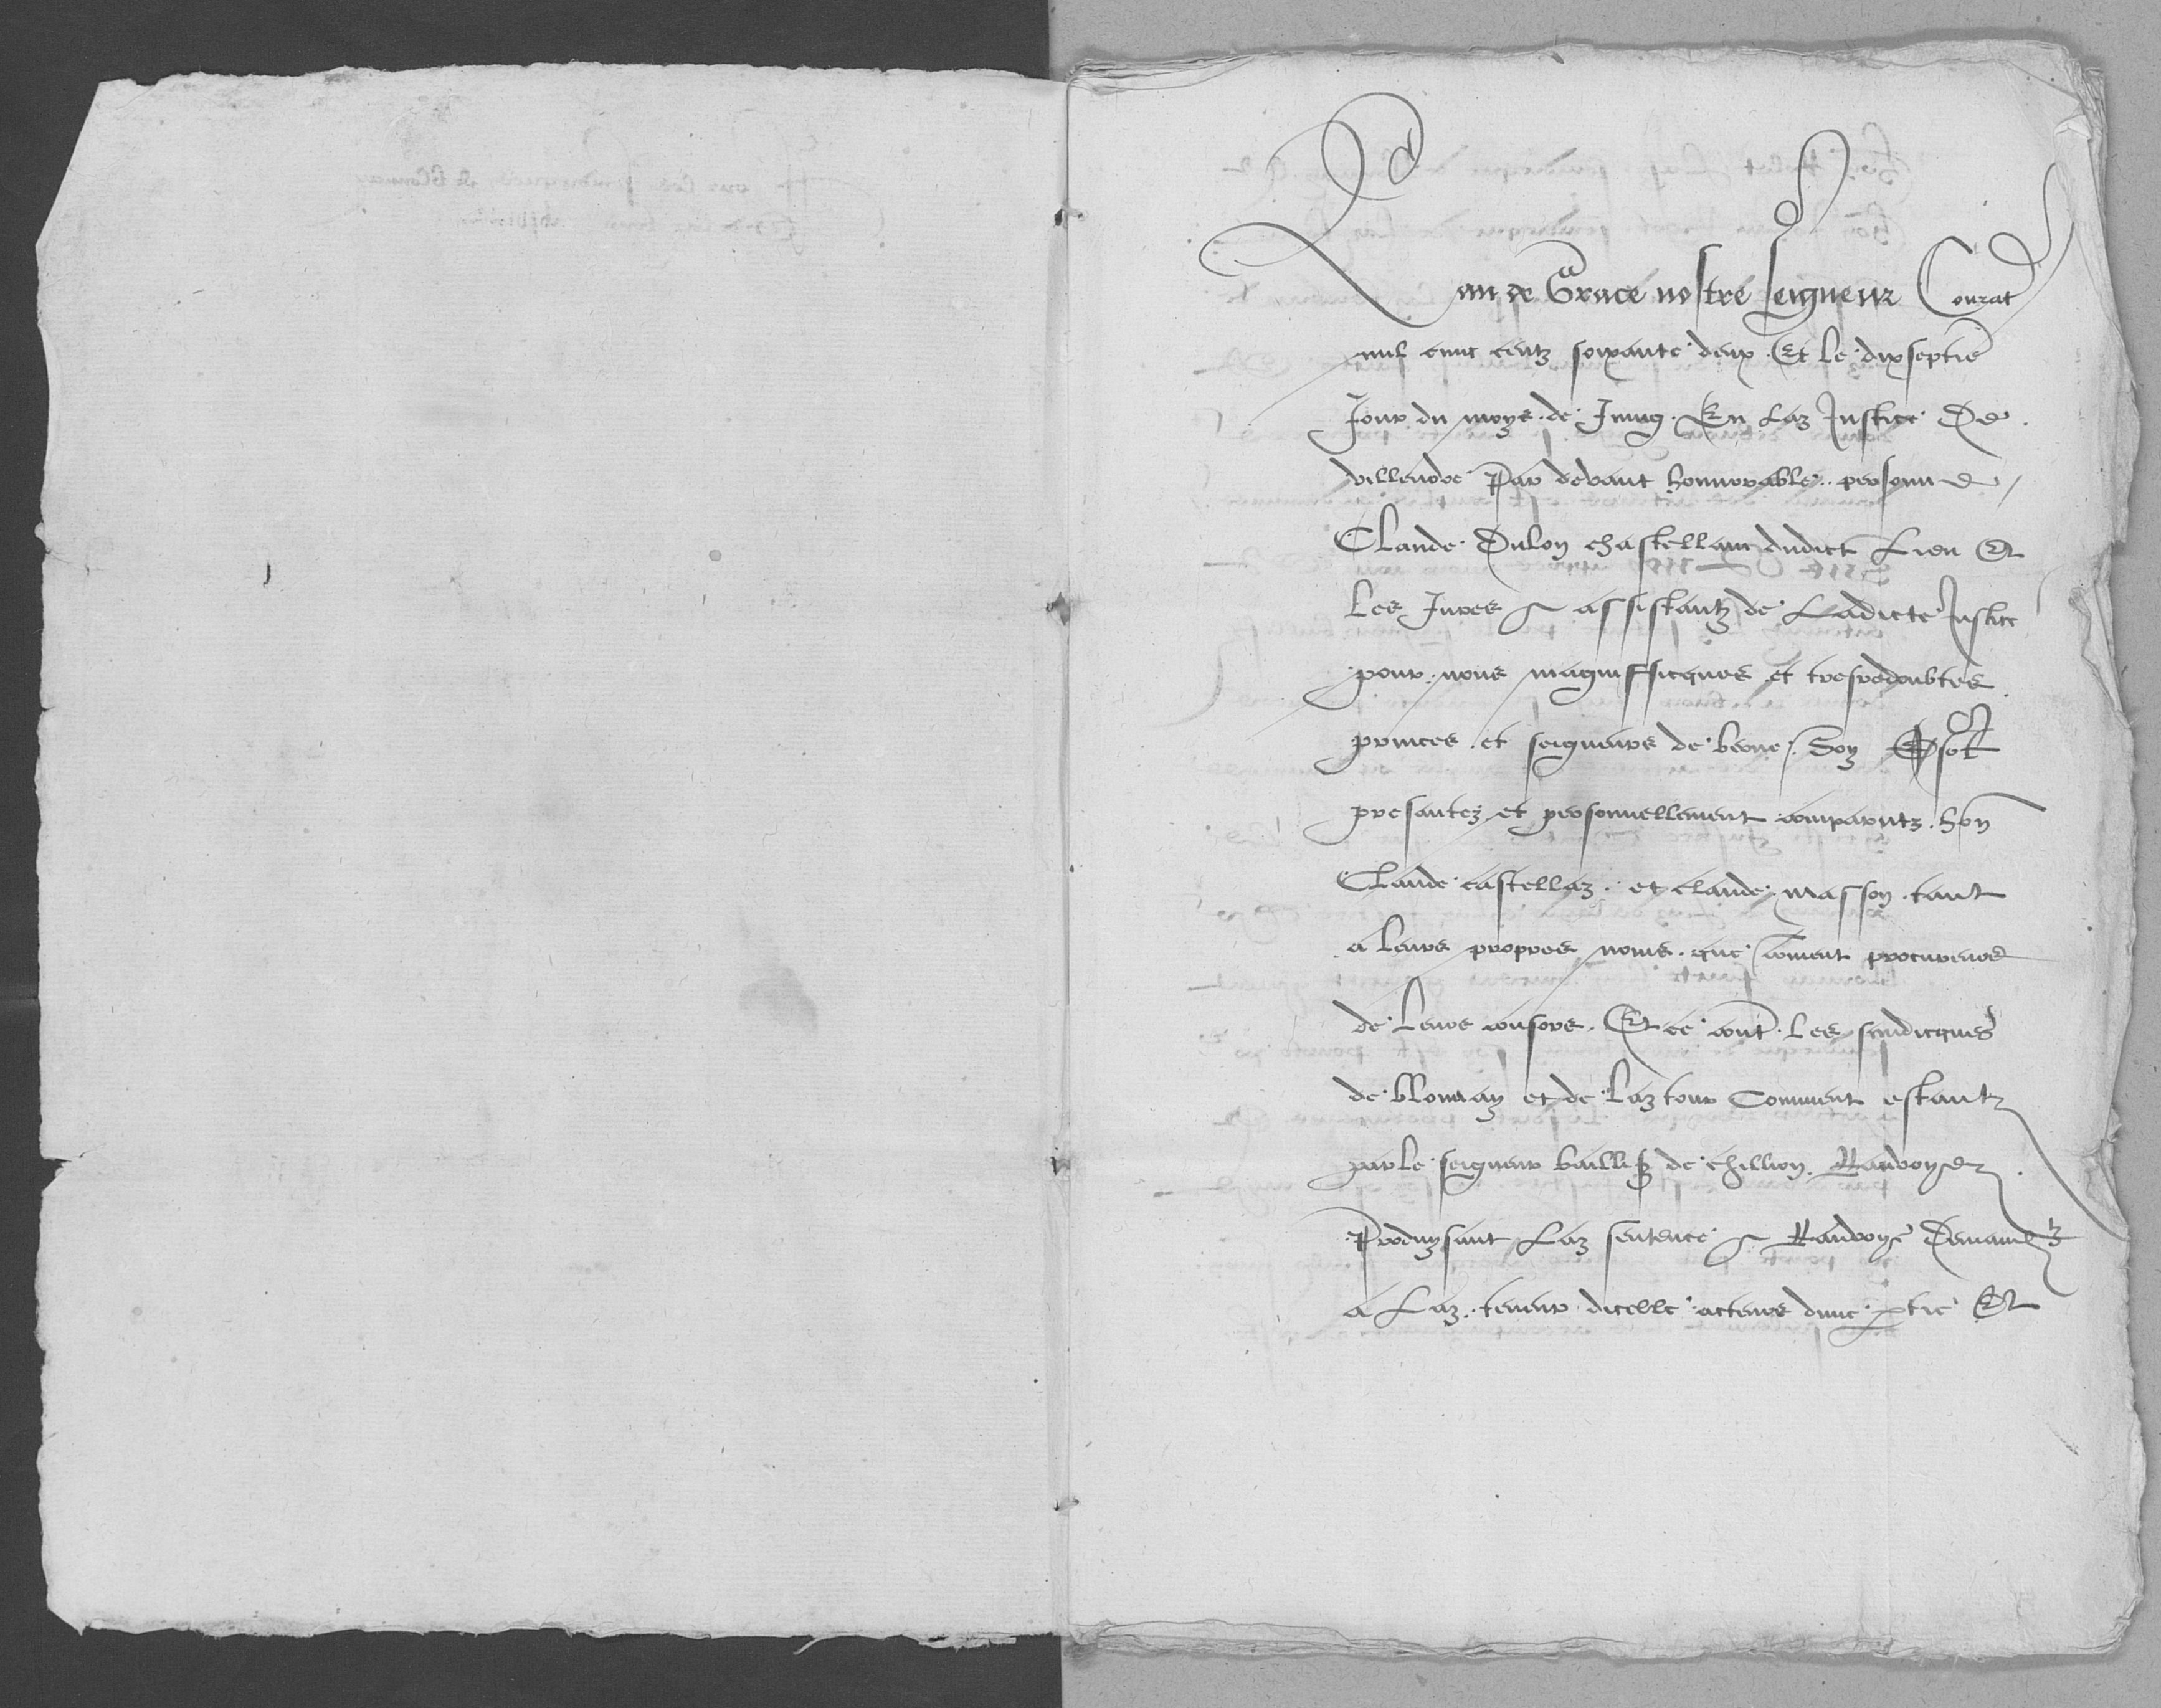 Lan de Grace nostre seigneur Courat
mil cinc centz soixante deux. Et le dixseptie
Jour du moys de Juing. En Laz Justice De
villenove Par devant honnorable personne
Claude Dulon chastellain dudict Lieu Et
les Jures assistantz de Ladicte Justice
pour nous magnifficques et tresredoubtes
princes et seigneurs de berne
presantez et personnellement comparutz hon
Claude castellaz et claude masson tant
a leurs propres noms que coment procureurs
de leurs consors. Et ce cont les sindicques
de blonnay et de laz tour Comment estantz
par le seigneur baillif de chillion Ranvoye
Produysant Laz sentence Ranvoye Demand
a Laz teneur dicelle acteurs dune ptie Et